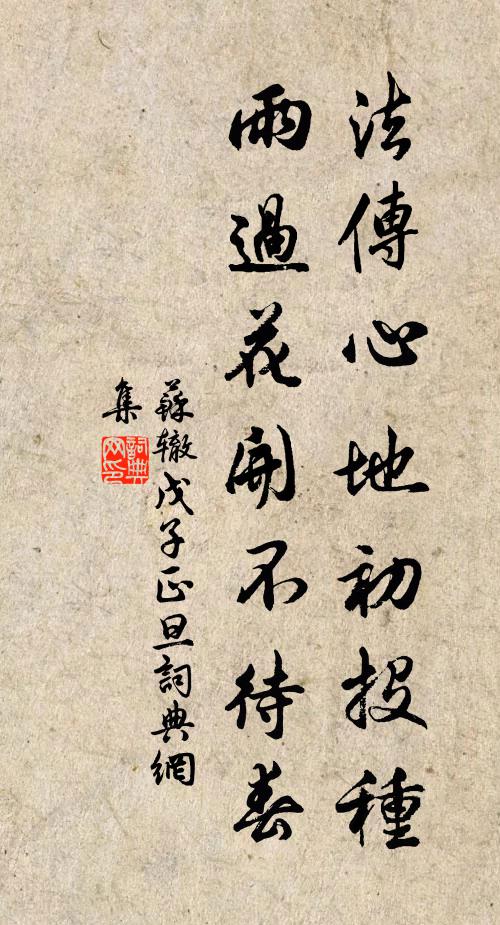 法傳心地初投種
雨過花開不待春
蘇轍戊子正旦詞典網
集
詞典
网印